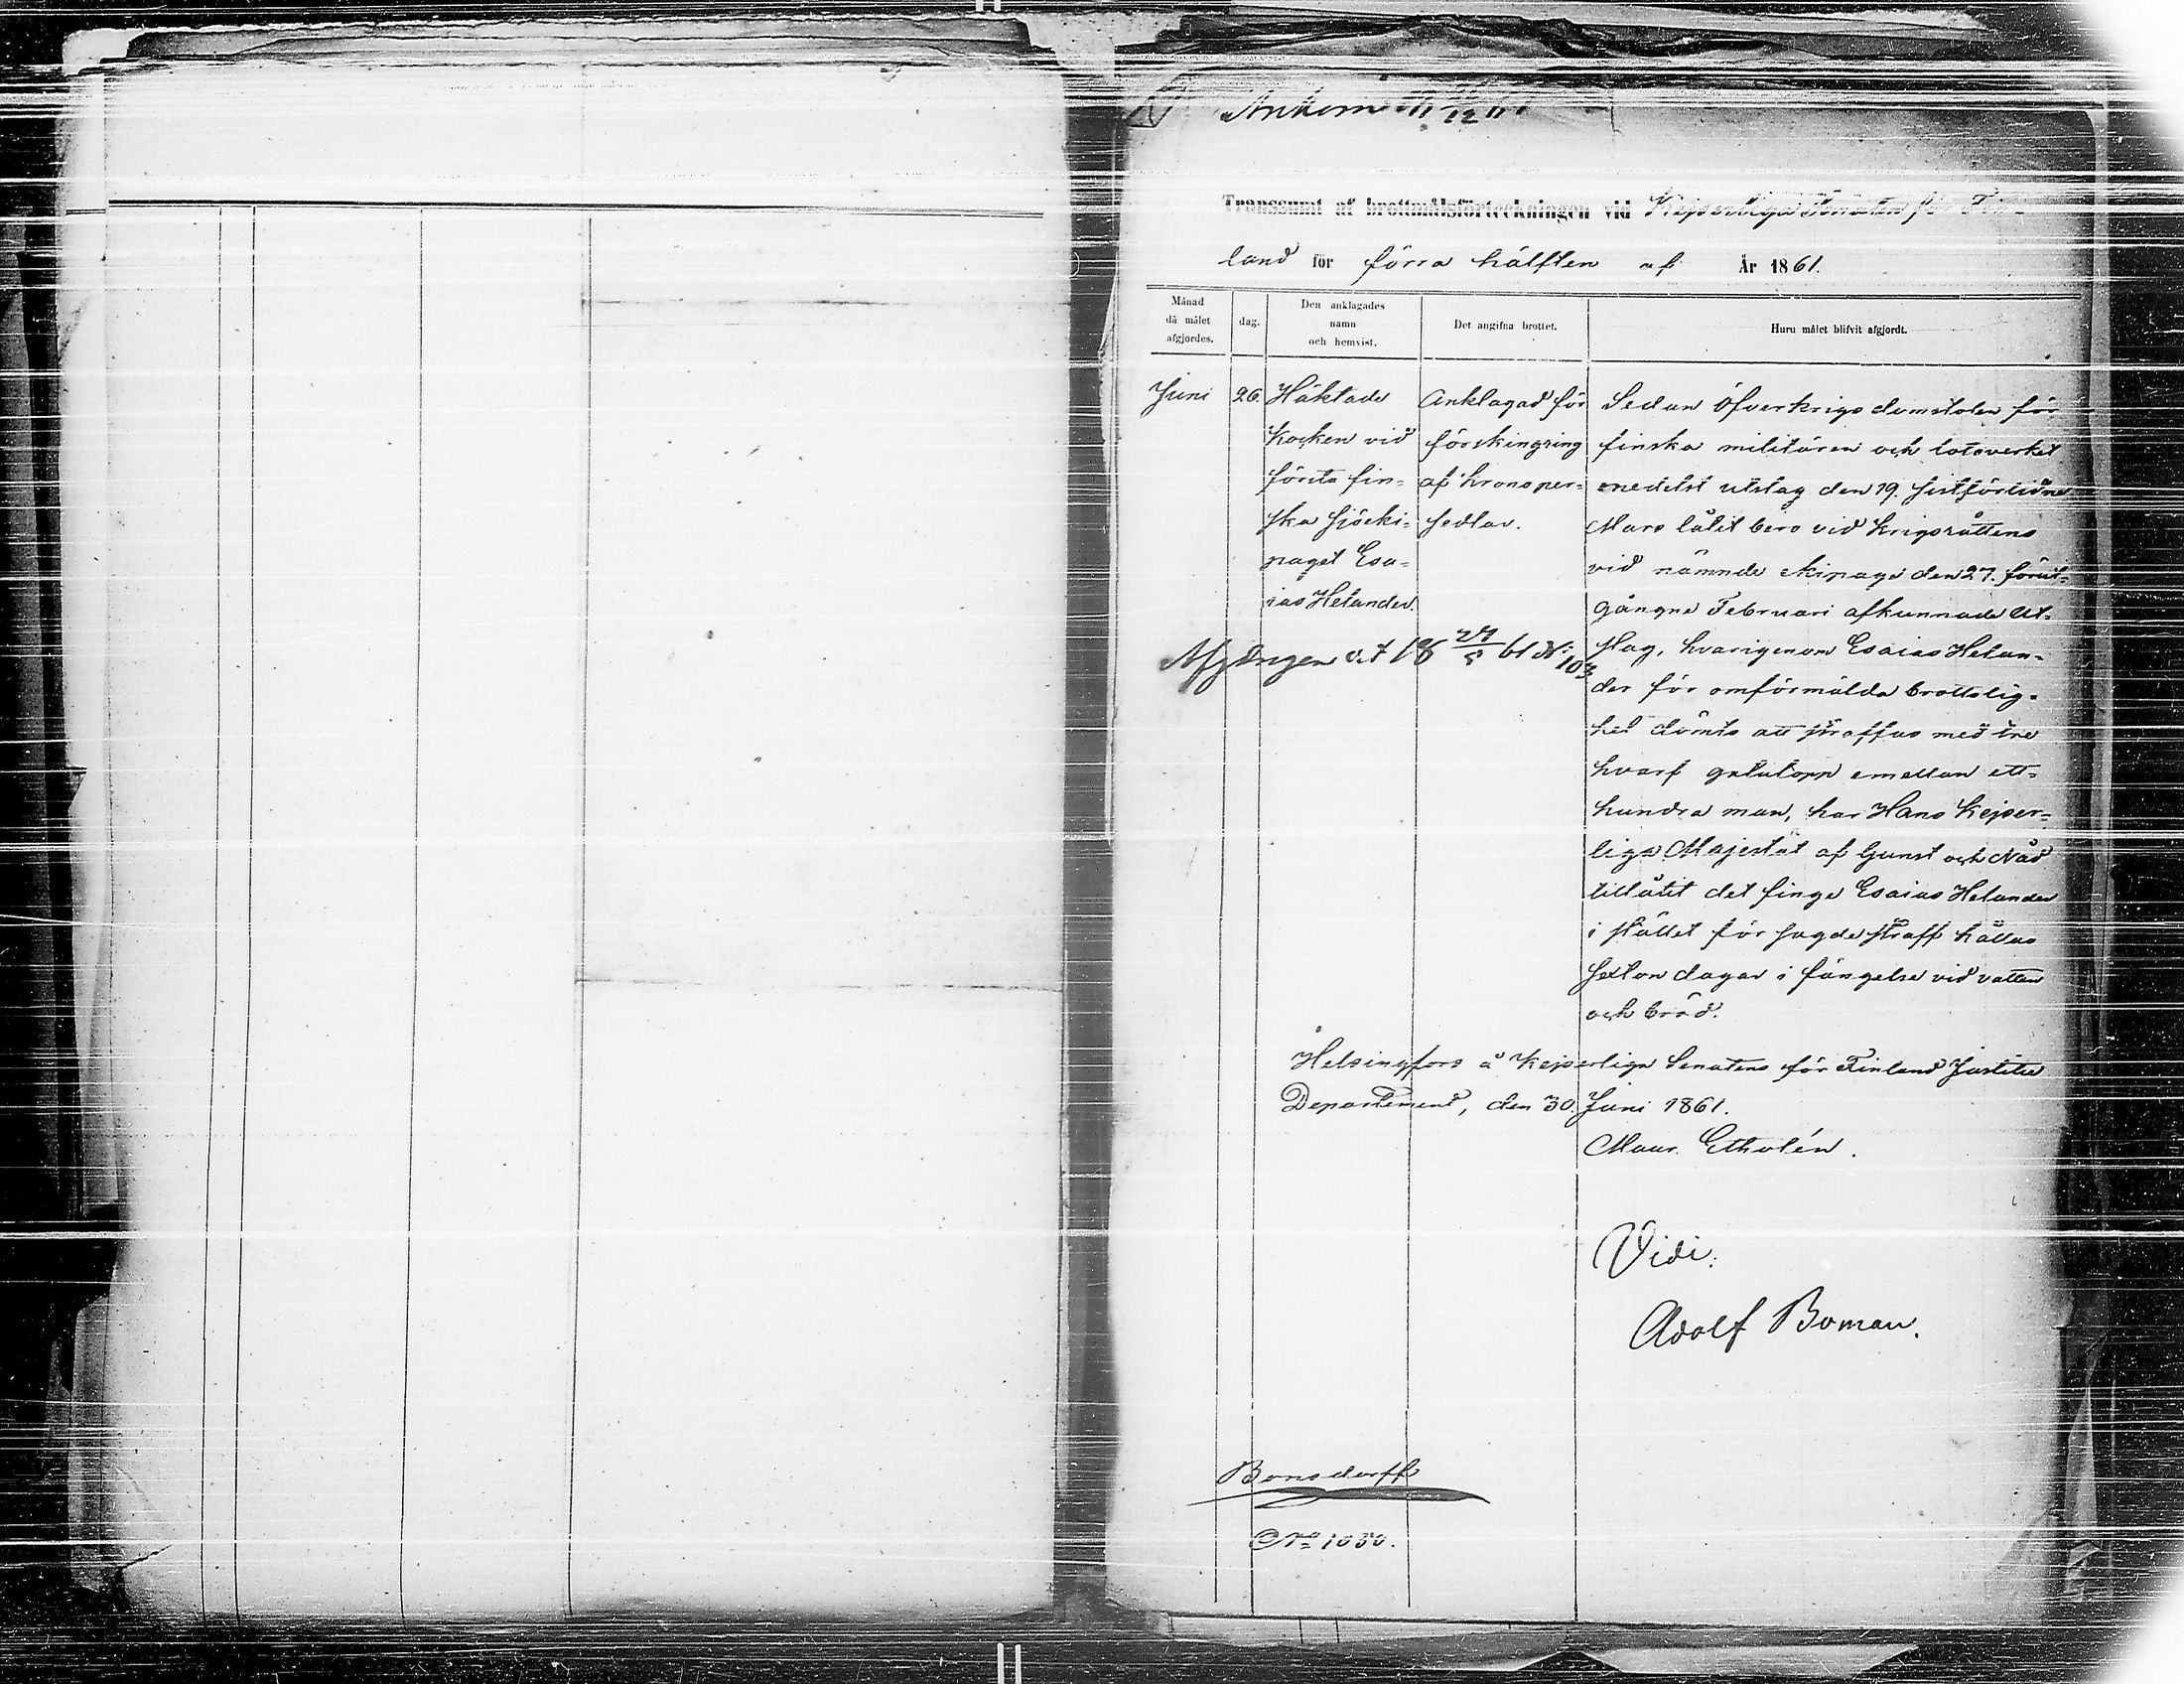 Ankom
Transsumt af brottmålsförteckningen vid Kejserliga Senaten för Fin-
land för förra hälften af År 1861.
Månad
då målet
afgjordes.
dag.
Den anklagades
namn
och hemvist.
Det angifna brottet.
Huru målet blifvit afgjordt.
Juni
26.
Häktade
Kocken vid
första fin-
ska Sjöeki-
paget Esa-
ias Helander.
Anklagad för
förskingring
af Kronoper-
sedlar.
Sedan Öfverkrigsdomstolen för
finska militären och lotsverket
medelst utslag den 19. sistförlidne
Mars låtit bero vid Krigsrättens
vid nämnde ekipage den 27. förut-
gångne Februari afkunnade Ut-
slag, hvarigenom Esaias Helan-
der för omförmälda brottslig-
het dömts att straffas med tre
hvarf gatulopp emellan ett-
hundra man, har Hans Kejser-
liga Majestät af Gunst och Nåd
tillåtit det finge Esaias Helander
i stället för sagde straff hållas
sexton dagar i fängelse vid vatten
och bröd.
Afgången 18 61 N: 103
Helsingfors å Kejserliga Senatens för Finland Justitie
Departement, den 30. Juni 1861.
Maur. Etholén.
Vidi:
Adolf Boman.
Bonsdorff
No 1030.